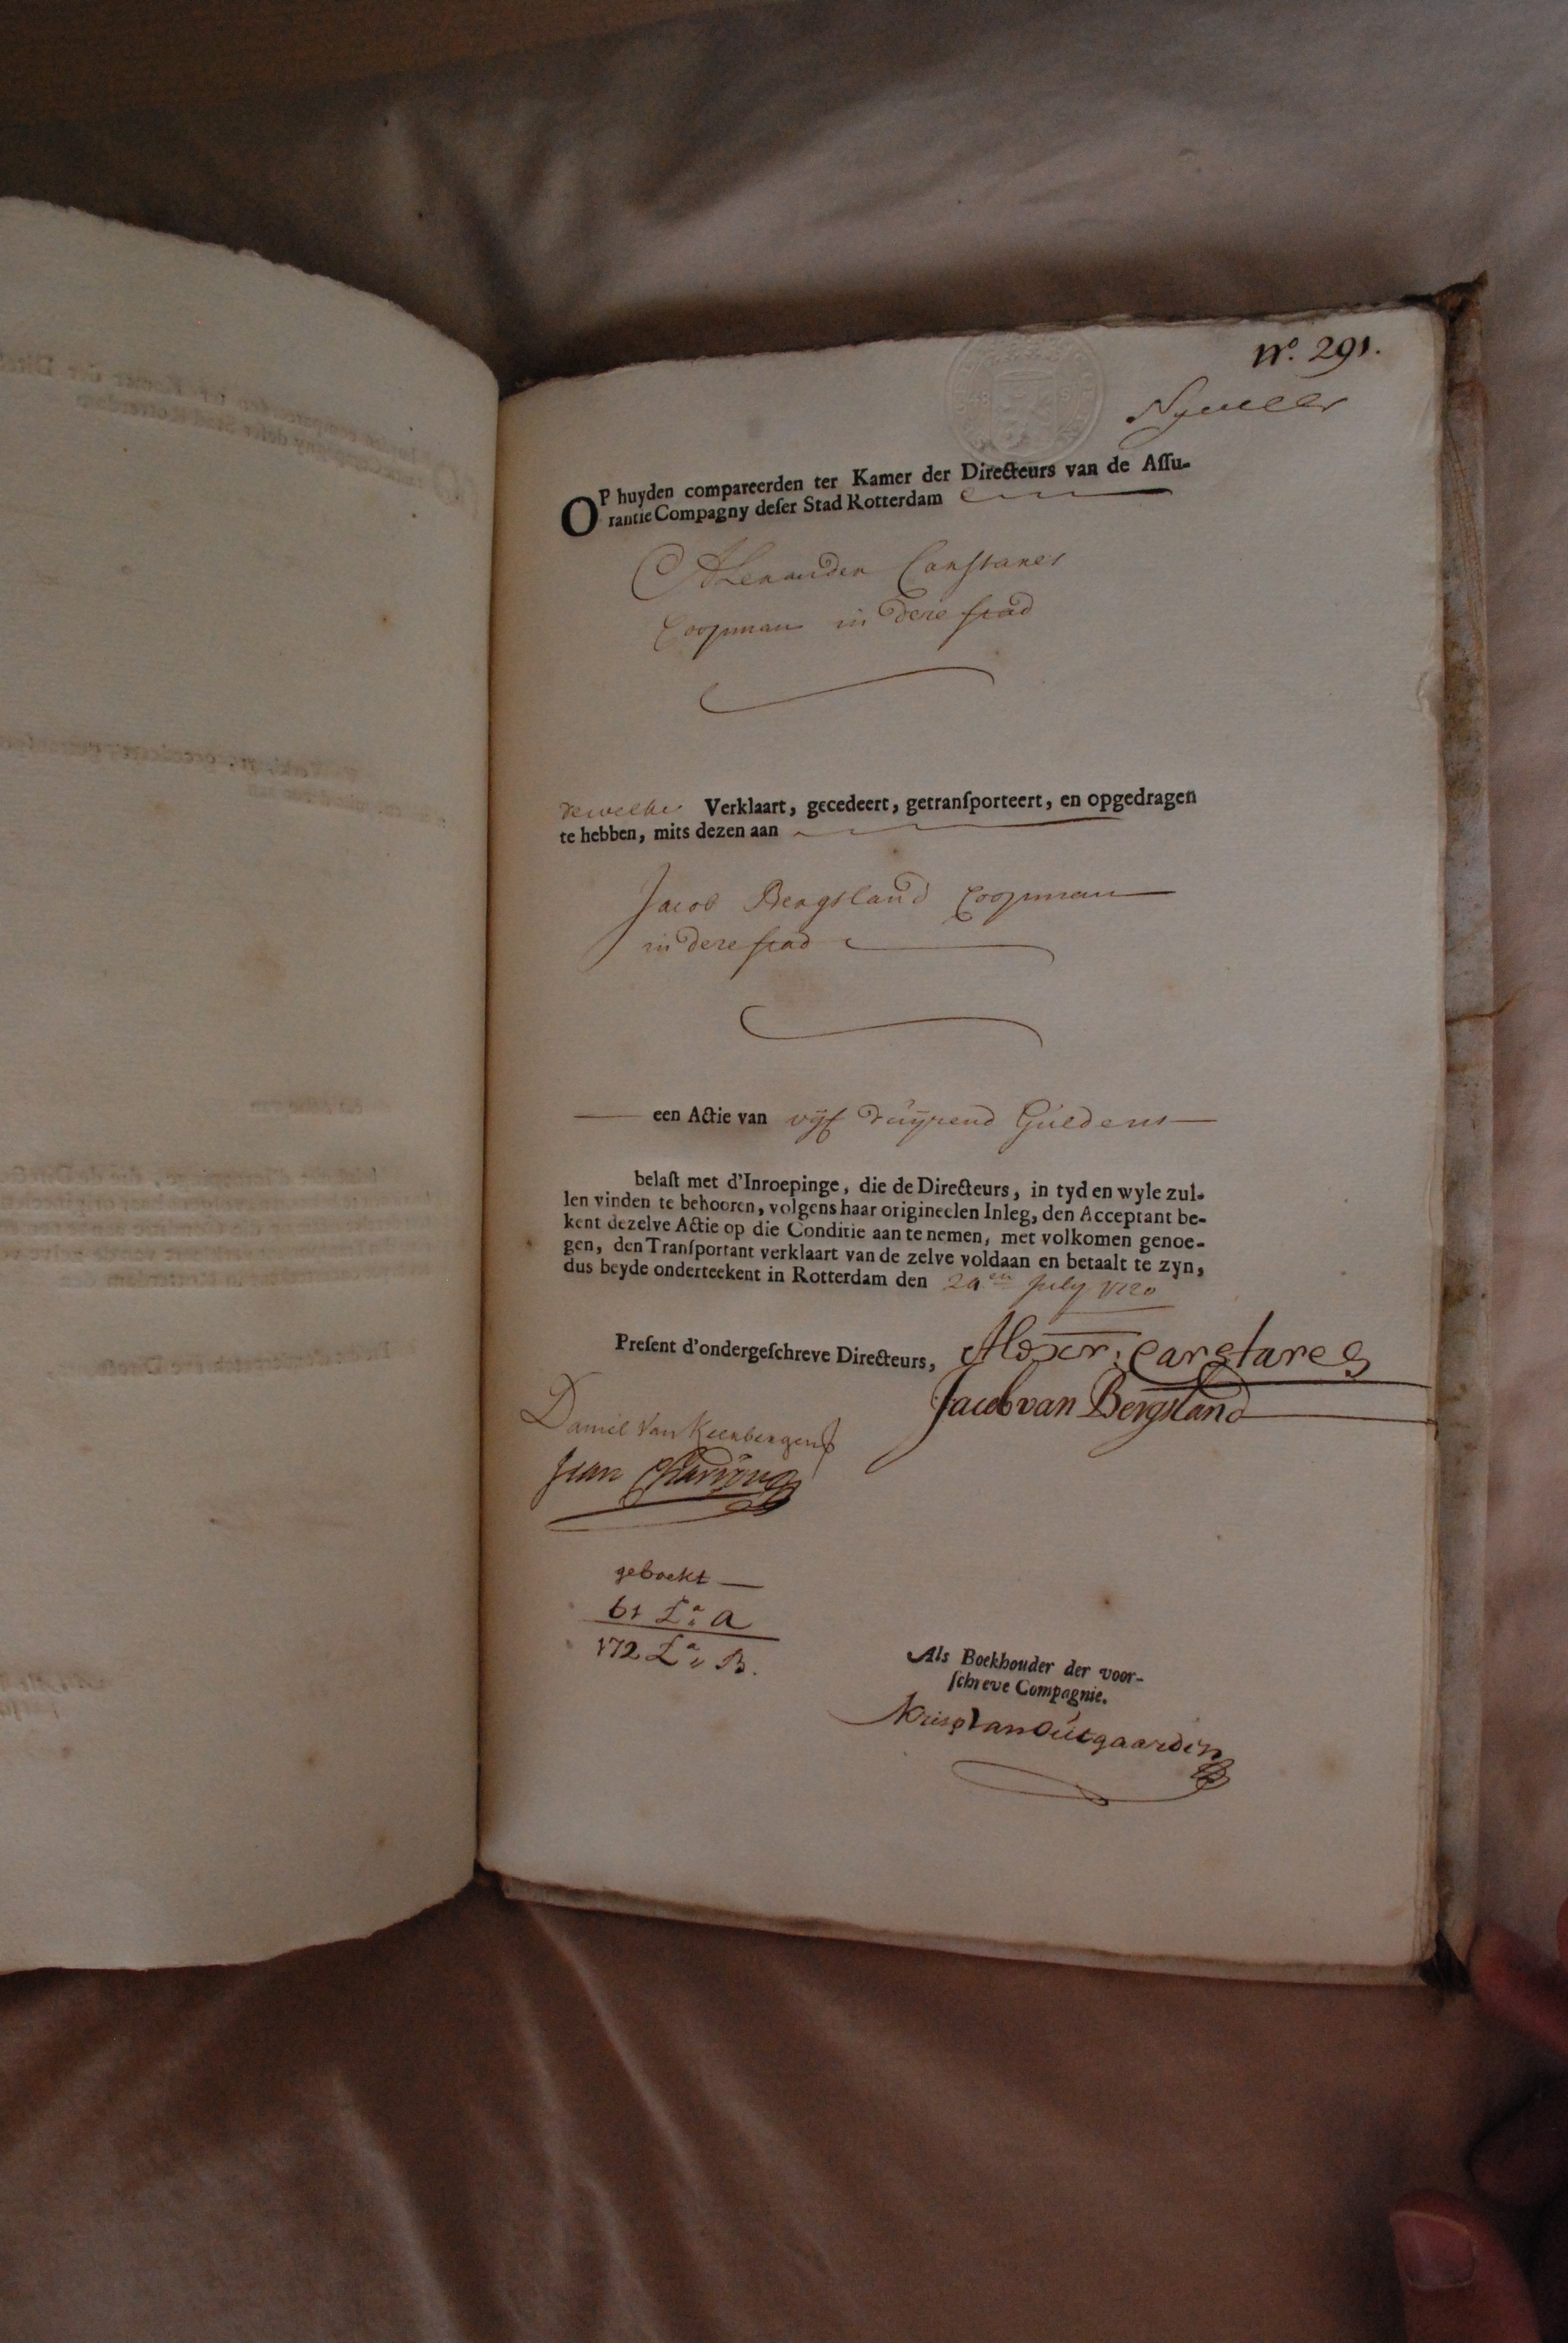 No. 291.
OP huyden compareerden ter Kamer der Directeurs van de Aſſu-
rantie Compagny deſer Stad Rotterdam
Alexander Carstares
Coopman in dese stad
dewelke Verklaart, gecedeert, getranſporteert, en opgedragen
te hebben, mits dezen aan
Jacob Bergsland Coopman
in dese stad
een Actie van vijf duijsend Guldens
belaſt met d'Inroepinge, die de Directeurs, in tyd en wyle zul-
len vinden te behooren, volgens haar origineelen Inleg, den Acceptant be-
kent dezelve Actie op die Conditie aan te nemen, met volkomen genoe-
gen, den Tranſportant verklaart van de zelve voldaan en betaalt te zyn,
dus beyde onderteekent in Rotterdam den July 1720
Preſent d'ondergeſchreve Directeurs,
Alexr. Carstares
Jacob van Bergsland
Daniel Van
Jean
geboekt
61 La A
172 La B.
Als Boekhouder der voor-
ſchreve Compagnie.